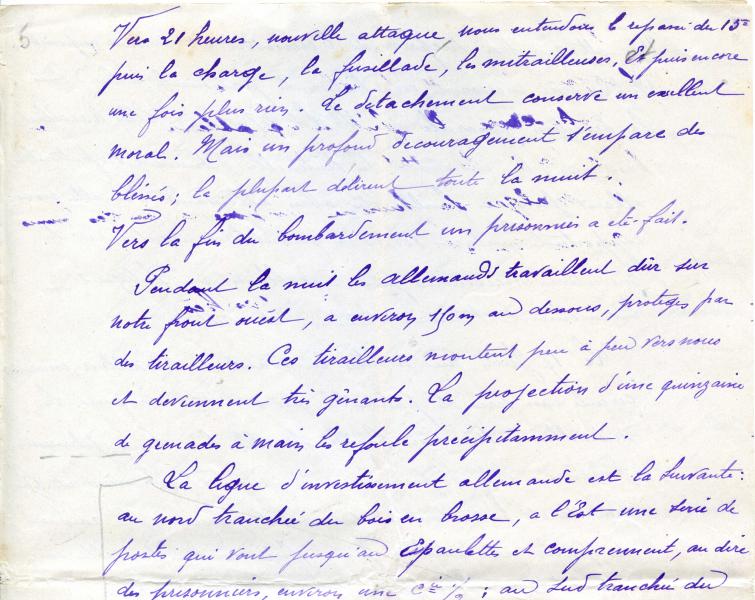 5
Vers 21 heures, nouvelle attaque nous entendons le repassé du 15e
puis la charge, la fusillade, les mitrailleuses, Et puis encore
une fois plus rien. Le détachement conserve un exellent
moral. Mais un profond découragement s'empare des
bléssés; la plupart délirent toute la nuit.
Vers la fin du bombardement un prisonnier a été fait.
Pendant la nuit les allemands travaillent dûr sur
notre front ouest, a environ 150m au dessous, protégés par
des tirailleurs. Ces tirailleurs montent peu à peu vers nous
et deviennent très gênants. La projection d'une quinzaine
de grenades à main les refoule précipitamment.
La ligne d'investissement allemande est la suivante:
au nord tranchée du bois en brosse, a l'Est une série de
postes qui vont jusqu'au Epaulettes et comprennent, au dire
des prisonniers, environ une Cie 1/2; au sud tranchée du